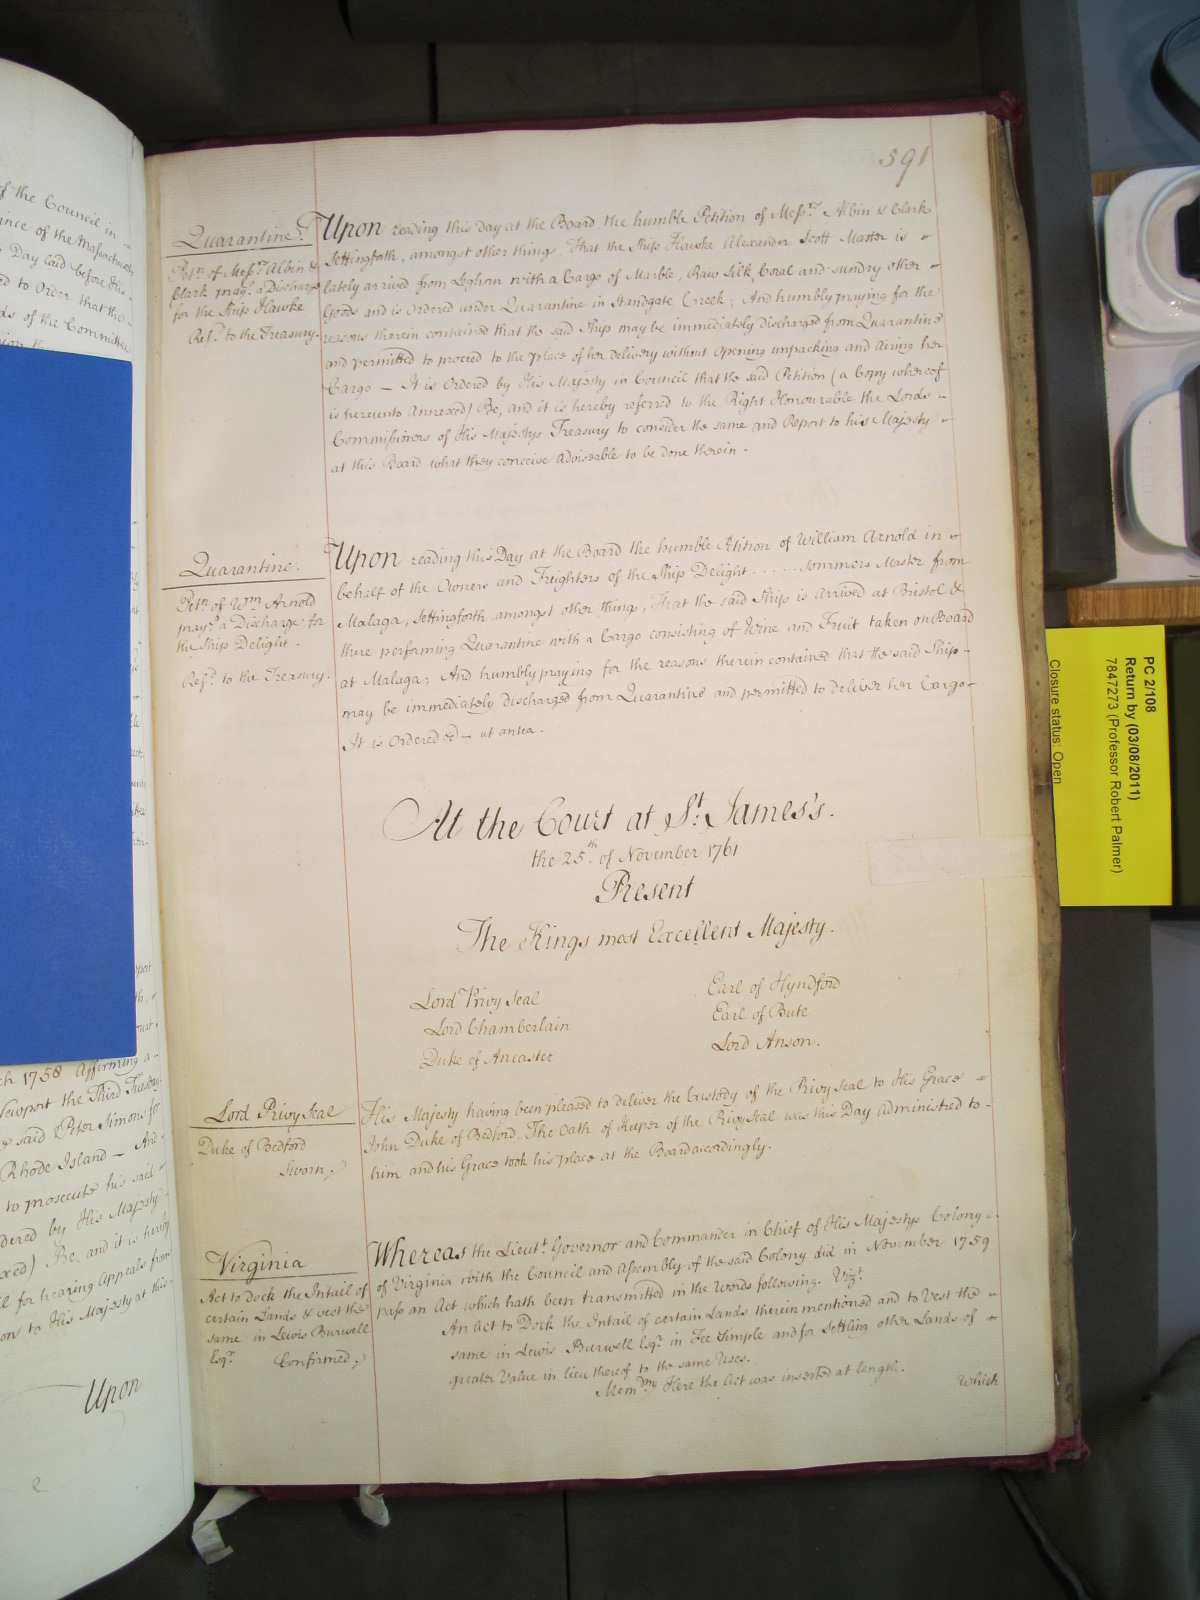 591
Quarantine.
Petn. of Messrs. Albin &
Clark prayg. a Discharge
for the Ship Hawke
Refd. to the Treasury.
Upon reading this day at the Board the humble Petition of Messrs. Albin & Clark
Settingforth, amongst other things That the Ship Hawke Alexander Scott Master is
lately arrived from Leghorn with a Cargo of Marble, Raw Silk, Coral and sundry other
Goods and is ordered under Quarantine in Standgate Creek; And humbly praying for the
reasons therein contained that the said Ship may be immediately discharged from Quarantine
and permitted to proceed to the place of her delivery without opening unpacking and airing her
Cargo — It is Ordered by His Majesty in Council that the said Petition (a Copy whereof
is hereunto Annexed) Be, and it is hereby referred to the Right Honourable the Lords
Commissioners of His Majestys Treasury to consider the same and Report to his Majesty
at this Board what they conceive adviseable to be done therein.
Quarantine.
Petn. of Wm. Arnold
prayg. a Discharge for
the Ship Delight.
Refd. to the Treasury.
Upon reading this Day at the Board the humble Petition of William Arnold in
behalf of the Owners and Freighters of the Ship Delight ..... Sommers Master from
Malaga, Settingforth, amongst other things, That the said Ship is arrived at Bristol &
there performing Quarantine with a Cargo consisting of Wine and Fruit taken on Board
at Malaga; And humbly praying for the reasons therein contained that the said Ship
may be immediately discharged from Quarantine and permitted to deliver her Cargo
It is Ordered &c. ut antea.
At the Court at St. James's.
the 25th. of November 1761
Present
The Kings most Excellent Majesty.
Lord Privy Seal
Lord Chamberlain
Duke of Ancaster
Earl of Hyndford
Earl of Bute
Lord Anson.
Lord Privy Seal
Duke of Bedford
Sworn.
His Majesty having been pleased to deliver the Custody of the Privy Seal to His Grace
John Duke of Bedford, The Oath of Keeper of the Privy Seal was this Day administred to
him and his Grace took his place at the Board accordingly.
Virginia
Act to Dock the Intail of
certain Lands & vest the
same in Lewis Burwell
Esqr. Confirmed.
Whereas the Lieutt. Governor and Commander in Chief of His Majestys Colony
of Virginia with the Council and Assembly of the said Colony did in November 1759
pass an Act which hath been transmitted in the Words following. Vizt.
An Act to Dock the Intail of certain Lands therein mentioned and to Vest the
same in Lewis Burwell Esqr. in Fee Simple and for Settling other Lands of
greater Value in lieu thereof to the same Uses.
Memdm. Here the Act was inserted at length.
Which
of the Council in
ince of the Massachusets
Day laid before His
ed to Order that the
ds of the Committee
ch 1758 Affirming a
Newport the Third Tuesday
e said Peter Simons for
Rhode Island — And
to prosecute his said
dered by His Majesty
xed) Be, and it is hereby
il for hearing Appeals from
on to His Majesty at this
Upon
PC 2/108
Return by (03/08/2011)
7847273 (Professor Robert Palmer)
Closure status: Open